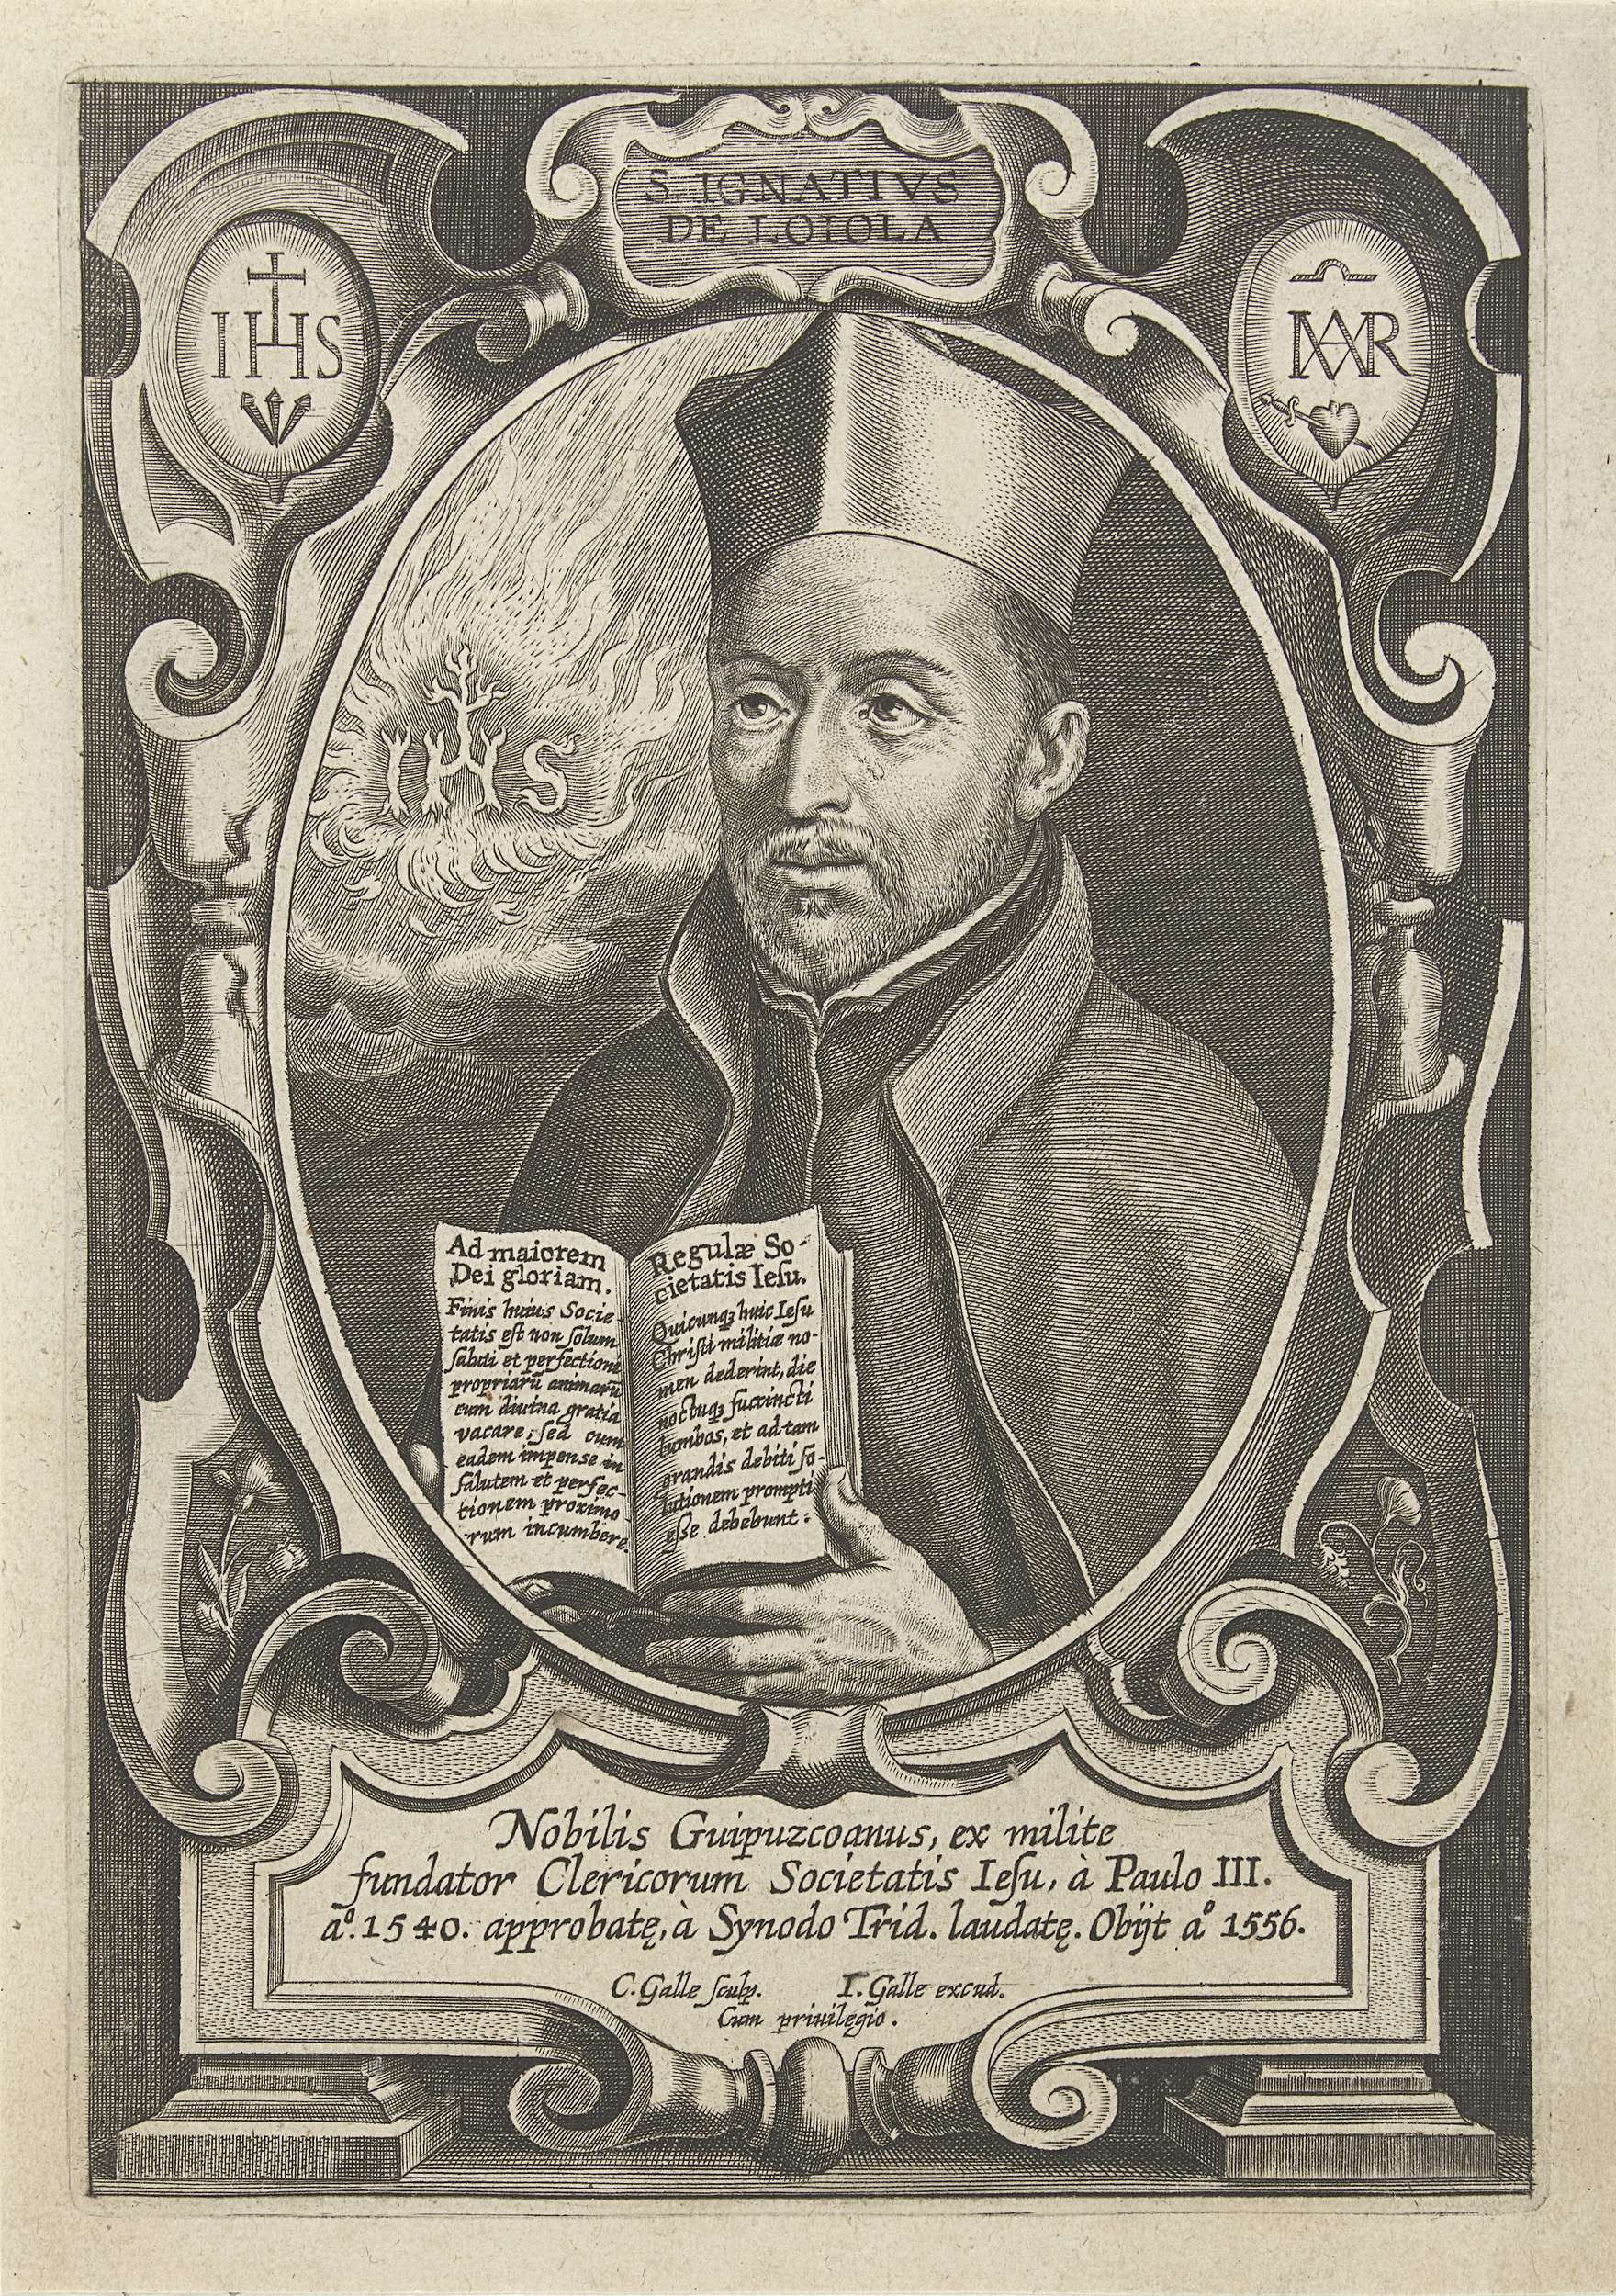 S. IGNATIVS
DE LOIOLA
IHS
MAR
IHS
Ad maiorem
Dei gloriam.
Finis huius Socie-
tatis est non ſolum
ſaluti et perfectioni
propriarū animarū
cum diuina gratia
vacare, ſed cum
eadem impense in
ſalutem et perfec-
tionem proximo
rum incumbere.
Regulæ So-
cietatis Ieſu.
Quicunqꝫ huic Ieſu
Chriſti militiæ no-
men dederint, die
noctuqꝫ ſuccincti
lumbos, et ad tam
grandis debiti ſo-
lutionem prompti
eſſe debebunt.
Nobilis Guipuzcoanus, ex milite
fundator Clericorum Societatis Ieſu, à Paulo III.
aº. 1540. approbatę, à Synodo Trid. laudatę. Obijt aº 1556.
C. Galle ſculp. I. Galle excud.
Cum priuilegio.